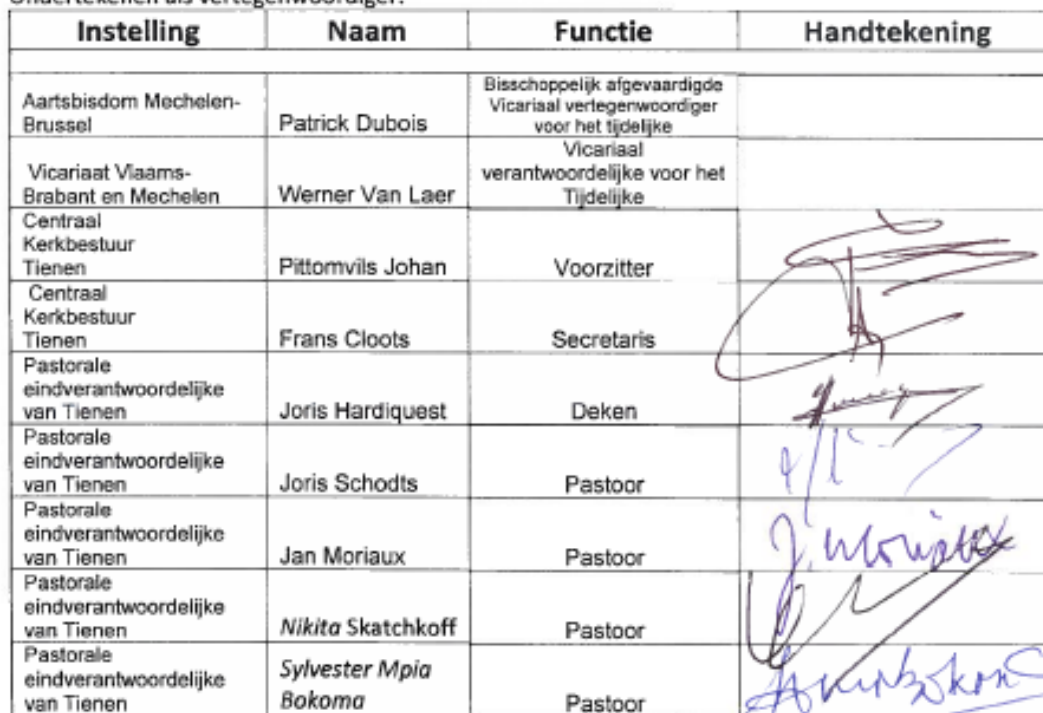 Ondertekenen als vertegenwoordiger:
Instelling Naam Functie Handtekening
Aartsbisdom Mechelen-
Brussel
Patrick Dubois
Bisschoppelijk afgevaardigde
Vicariaal vertegenwoordiger
voor het tijdelijke
Vicariaat Vlaams-
Brabant en Mechelen
Werner Van Laer
Vicariaal
verantwoordelijke voor het
Tijdelijke
Centraal
Kerkbestuur
Tienen
Pittomvils Johan
Voorzitter
Centraal
Kerkbestuur
Tienen
Frans Cloots
Secretaris
Pastorale
eindverantwoordelijke
van Tienen
Joris Hardiquest
Deken
Pastorale
eindverantwoordelijke
van Tienen
Joris Schodts
Pastoor
Pastorale
eindverantwoordelijke
van Tienen
Jan Moriaux
Pastoor
J. Moriaux
Pastorale
eindverantwoordelijke
van Tienen
Nikita Skatchkoff
Pastoor
Pastorale
eindverantwoordelijke
van Tienen
Sylvester Mpia
Bokoma
Pastoor